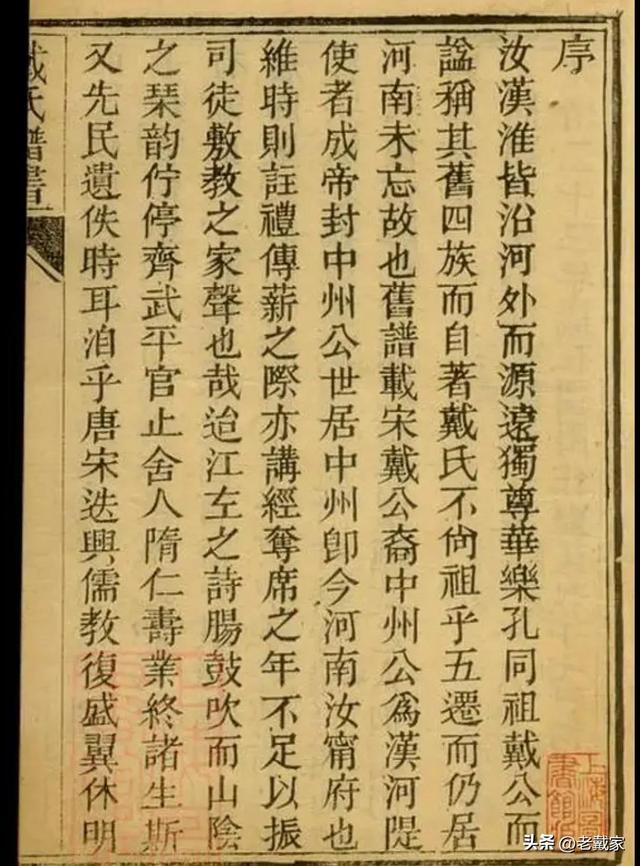 序
汝漢淮皆沿河外而源遠獨尊華樂孔同祖戴公而
諡稱其舊四族而自著戴氏不尙祖乎五遷而仍居
河南未忘故也舊譜載宋戴公裔中州公為漢河隄
使者成帝封中州公世居中州卽今河南汝甯府也
維時則註禮傳薪之際亦講經奪席之年不足以振
司徒敷教之家聲也哉迨江左之詩腸鼓吹而山陰
之琹韵佇停齊武平官止舍人隋仁壽業終諸生斯
又先民遺佚時耳洎乎唐宋迭興儒教復盛翼休明
戴氏譜書
上海圖書館
头条 @老戴家